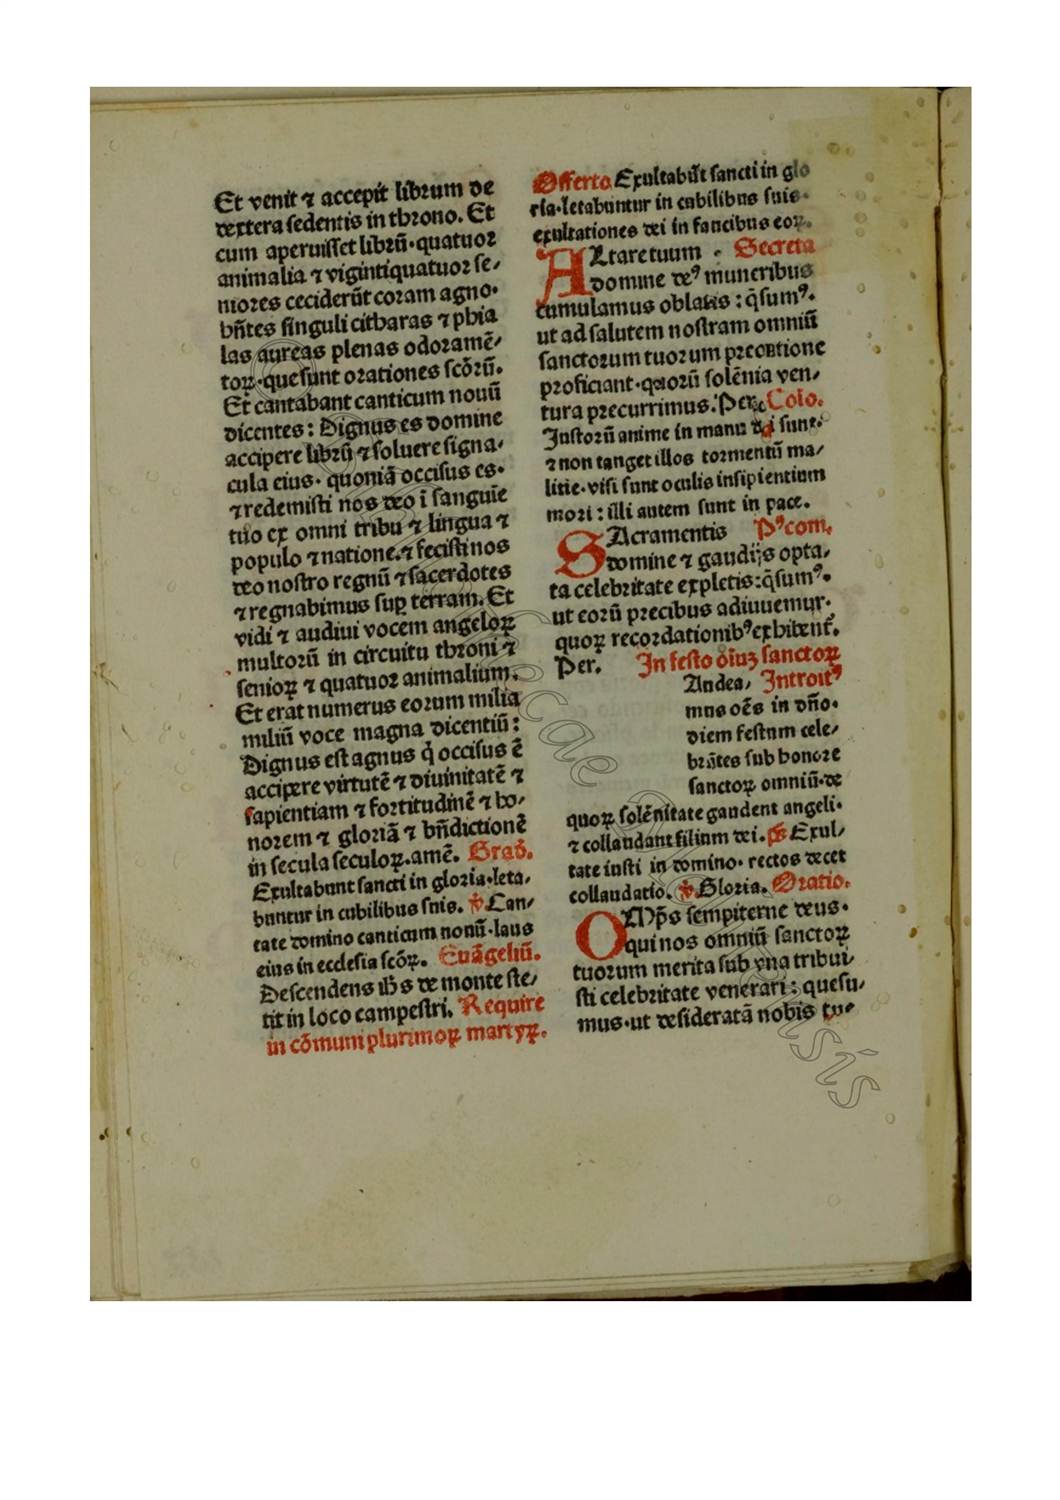 Et venit ⁊ accepit librum de
dextera sedentis in throno. Et
cum aperuisset librū·quatuor
animalia ⁊ vigintiquatuor se⸗
niores ceciderūt coram agno·
bñtes singuli citharas ⁊ phia
las aureas plenas odoramē⸗
toꝝ·que sunt orationes scōrū.
Et cantabant canticum nouū
dicentes: Dignus es domine
accipere librū ⁊ soluere signa·
cula eius· quoniā occisus es·
⁊ redemisti nos deo ī sanguīe
tuo ex omni tribu ⁊ lingua ⁊
populo ⁊ natione.⁊ fecisti nos
deo nostro regnū ⁊ sacerdotes
⁊ regnabimus suꝑ terram. Et
vidi ⁊ audiui vocem angeloꝝ
multorū in circuitu throni ⁊
senioꝝ ⁊ quatuor animalium.
Et erat numerus eorum milia
miliū voce magna dicentiū:
Dignus est agnus q̇ occisus ē
accipere virtutē ⁊ diuinitatē ⁊
sapientiam ⁊ fortitudinē ⁊ ho⸗
norem ⁊ gloriā ⁊ bñdictionē
in secula seculoꝝ.amē. Grad̄.
Exultabunt sancti in gloria·leta⸗
buntur in cubilibus suis. ℣ Can⸗
tate domino canticum nouū·laus
eius in ecclesia scōꝝ. Euāgeliū.
Descendens ihs de monte ste⸗
tit in loco campestri. Require
in cōmum plurimoꝝ martyꝝ.
Offerto. Exultabūt sancti in glo
ria·letabuntur in cubilibus suis·
exultationes dei in faucibus eoꝝ.
ALtare tuum · Secreta
domine deꝰ muneribus
cumulamus oblatis : q̄sumꝰ·
ut ad salutem nostram omniū
sanctorum tuorum precatione
proficiant·quorū solēnia ven⸗
tura precurrimus. Per. Cōio.
Justorū anime in manu dei sunt·
⁊ non tanget illos tormentū ma⸗
litie·visi sunt oculis insipientium
mori : illi autem sunt in pace.
SAcramentis Pꝰcom.
domine ⁊ gaudijs opta⸗
ta celebritate expletis:q̄sumꝰ·
ut eorū precibus adiuuemur·
quoꝝ recordationibꝰ exhibent̄.
Per. In festo oīuꝫ sanctoꝝ
Audea⸗ Introitꝰ
mus oēs in dño·
diem festum cele⸗
brātes sub honore
sanctoꝝ omniū·de
quoꝝ solēnitate gaudent angeli·
⁊ collaudant filium dei. ps Exul⸗
tate iusti in domino· rectos decet
collaudatio. ℣ Gloria. Oratio.
OMps sempiterne deus·
qui nos omniū sanctoꝝ
tuorum merita sub vna tribui⸗
sti celebritate venerari : quesu⸗
mus·ut desideratā nobis tue